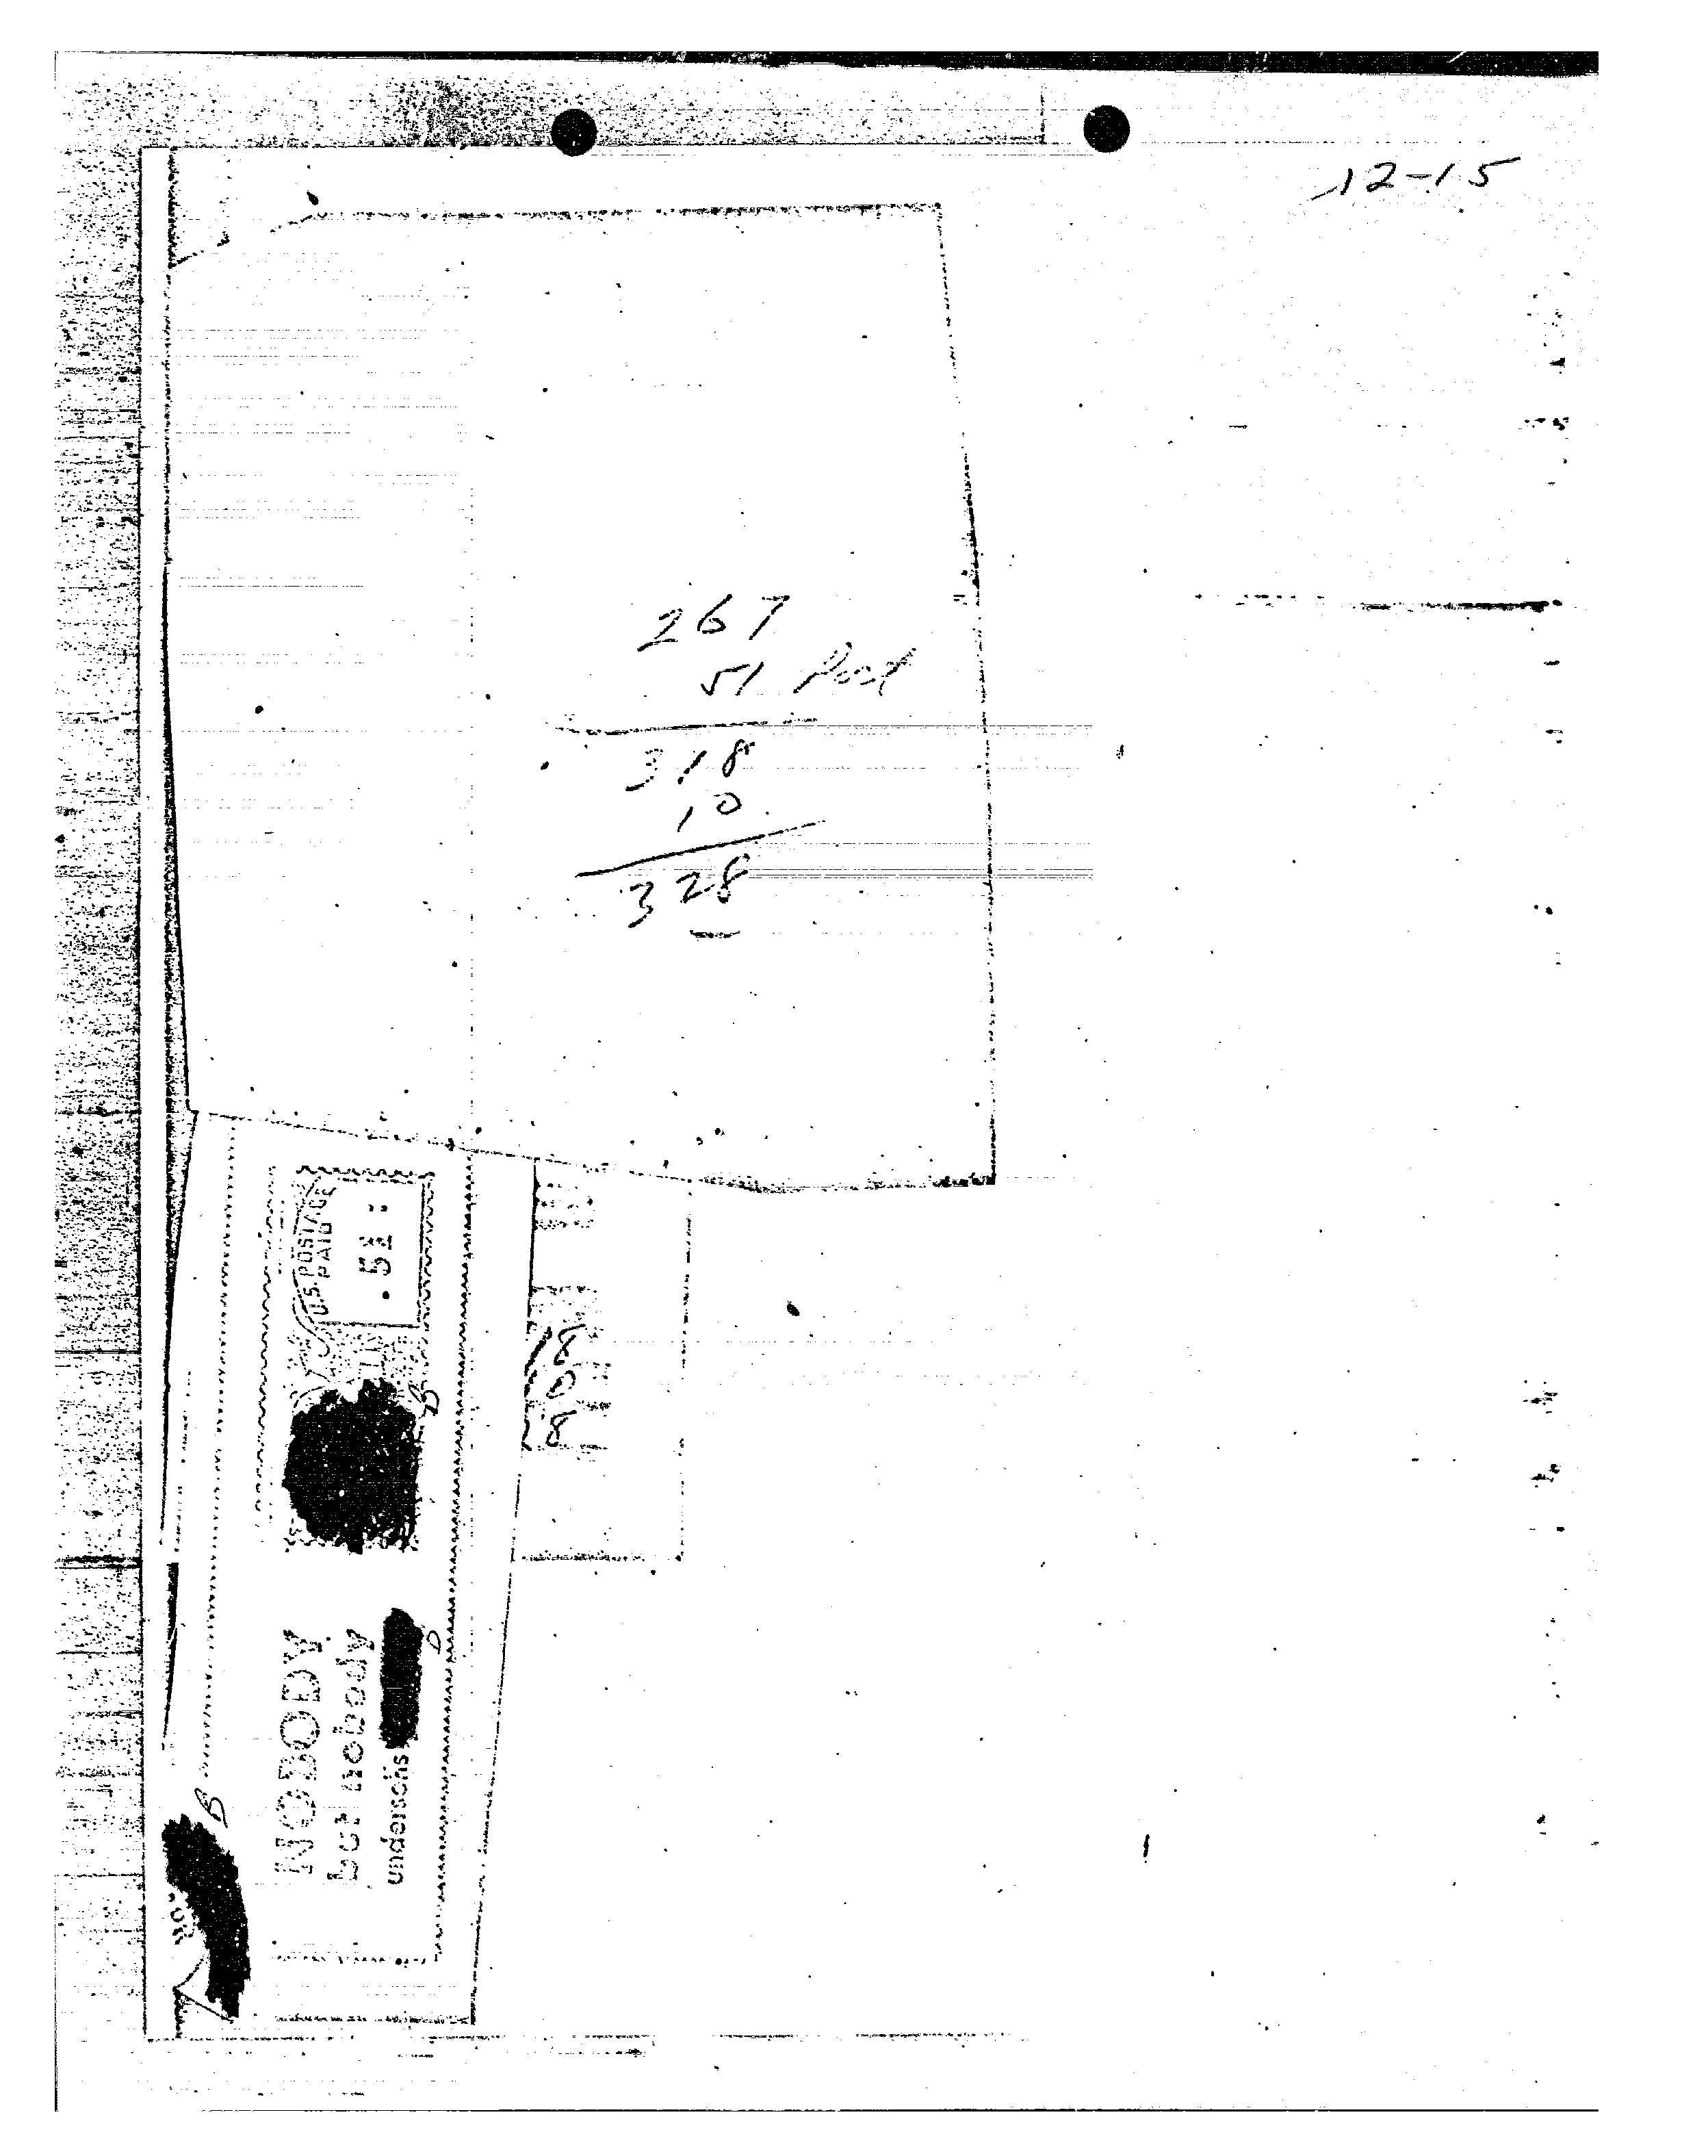 12-15
267
51 Post
318
10
328
U.S. POSTAGE
PAID
.51
18
0
8
B
B
NOBODY
but nobody
undersells
B